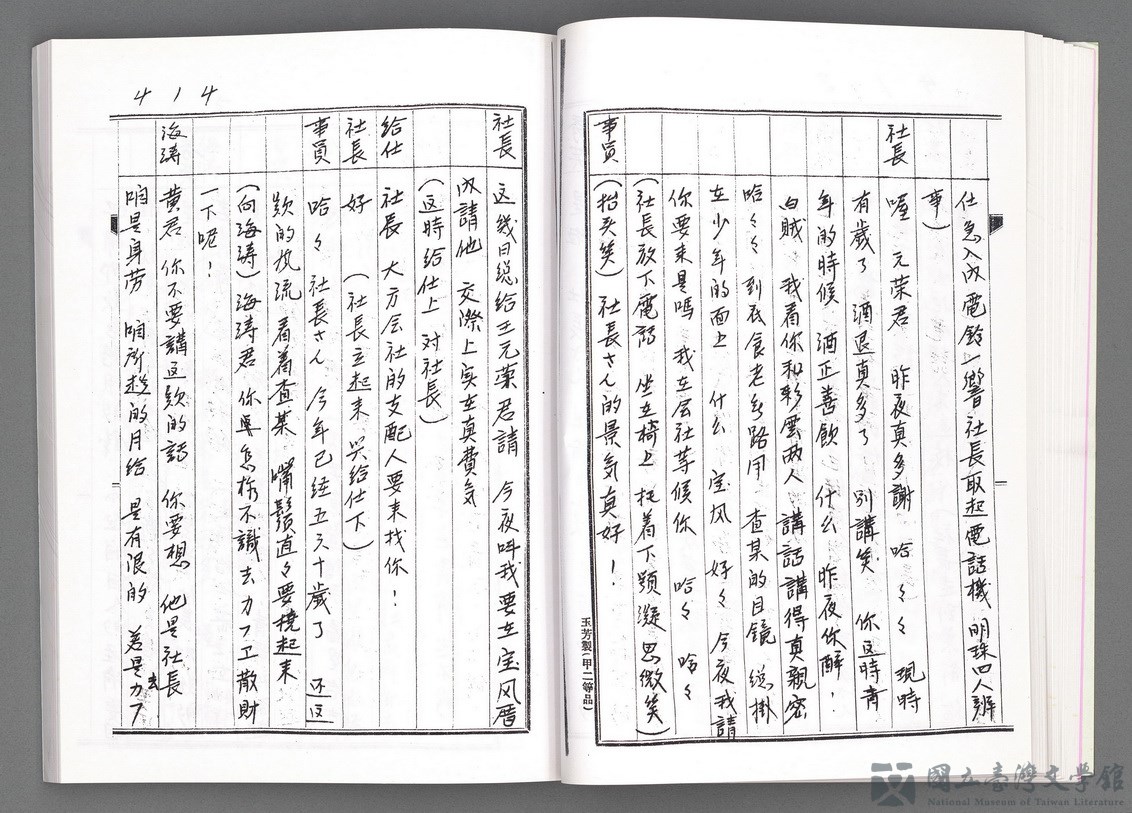 仕急入內電鈴一響社長取起電話機 明珠四人辦
事)
社長 喔 元荣君 昨夜真多謝 哈々々 現時
有歲了 酒退真多了 別講笑 你這時青
年的時候 酒正善飲 什么 昨夜你醉!
白賊 我看你和彩雲兩人 講話講得真親密
哈々々 到底食老多路用 查某的目鏡 總掛
在少年的面上 什么 宝风 好々 今夜我請
你要来是嗎 我在会社等候你 哈々 哈々
(社長放下電話 坐在椅上 托着下頭凝思微笑)
事員 (抬头笑) 社長さん的景気真好!
玉芳製(甲二等品)
社長 这幾日總給王元荣君請 今夜叫我要在宝风厝
內請他 交際上实在真費気
(這時給仕上 对社長)
給仕 社長 大方会社的支配人要来找你!
社長 好 (社長立起来 与給仕下)
事員 哈々 社長さん 今年已経五六十歲了 还这
款的风流 看着查某 嘴鬚直々要撓起来
(向海涛) 海涛君 你怎样不識去カフエ散財
一下呢!
海涛 黄君 你不要講這款的話 你要想 他是社長
咱是身劳 咱所趁的月給 是有限的 若是去カフ
414
國立臺灣文學館
National Museum of Taiwan Literature